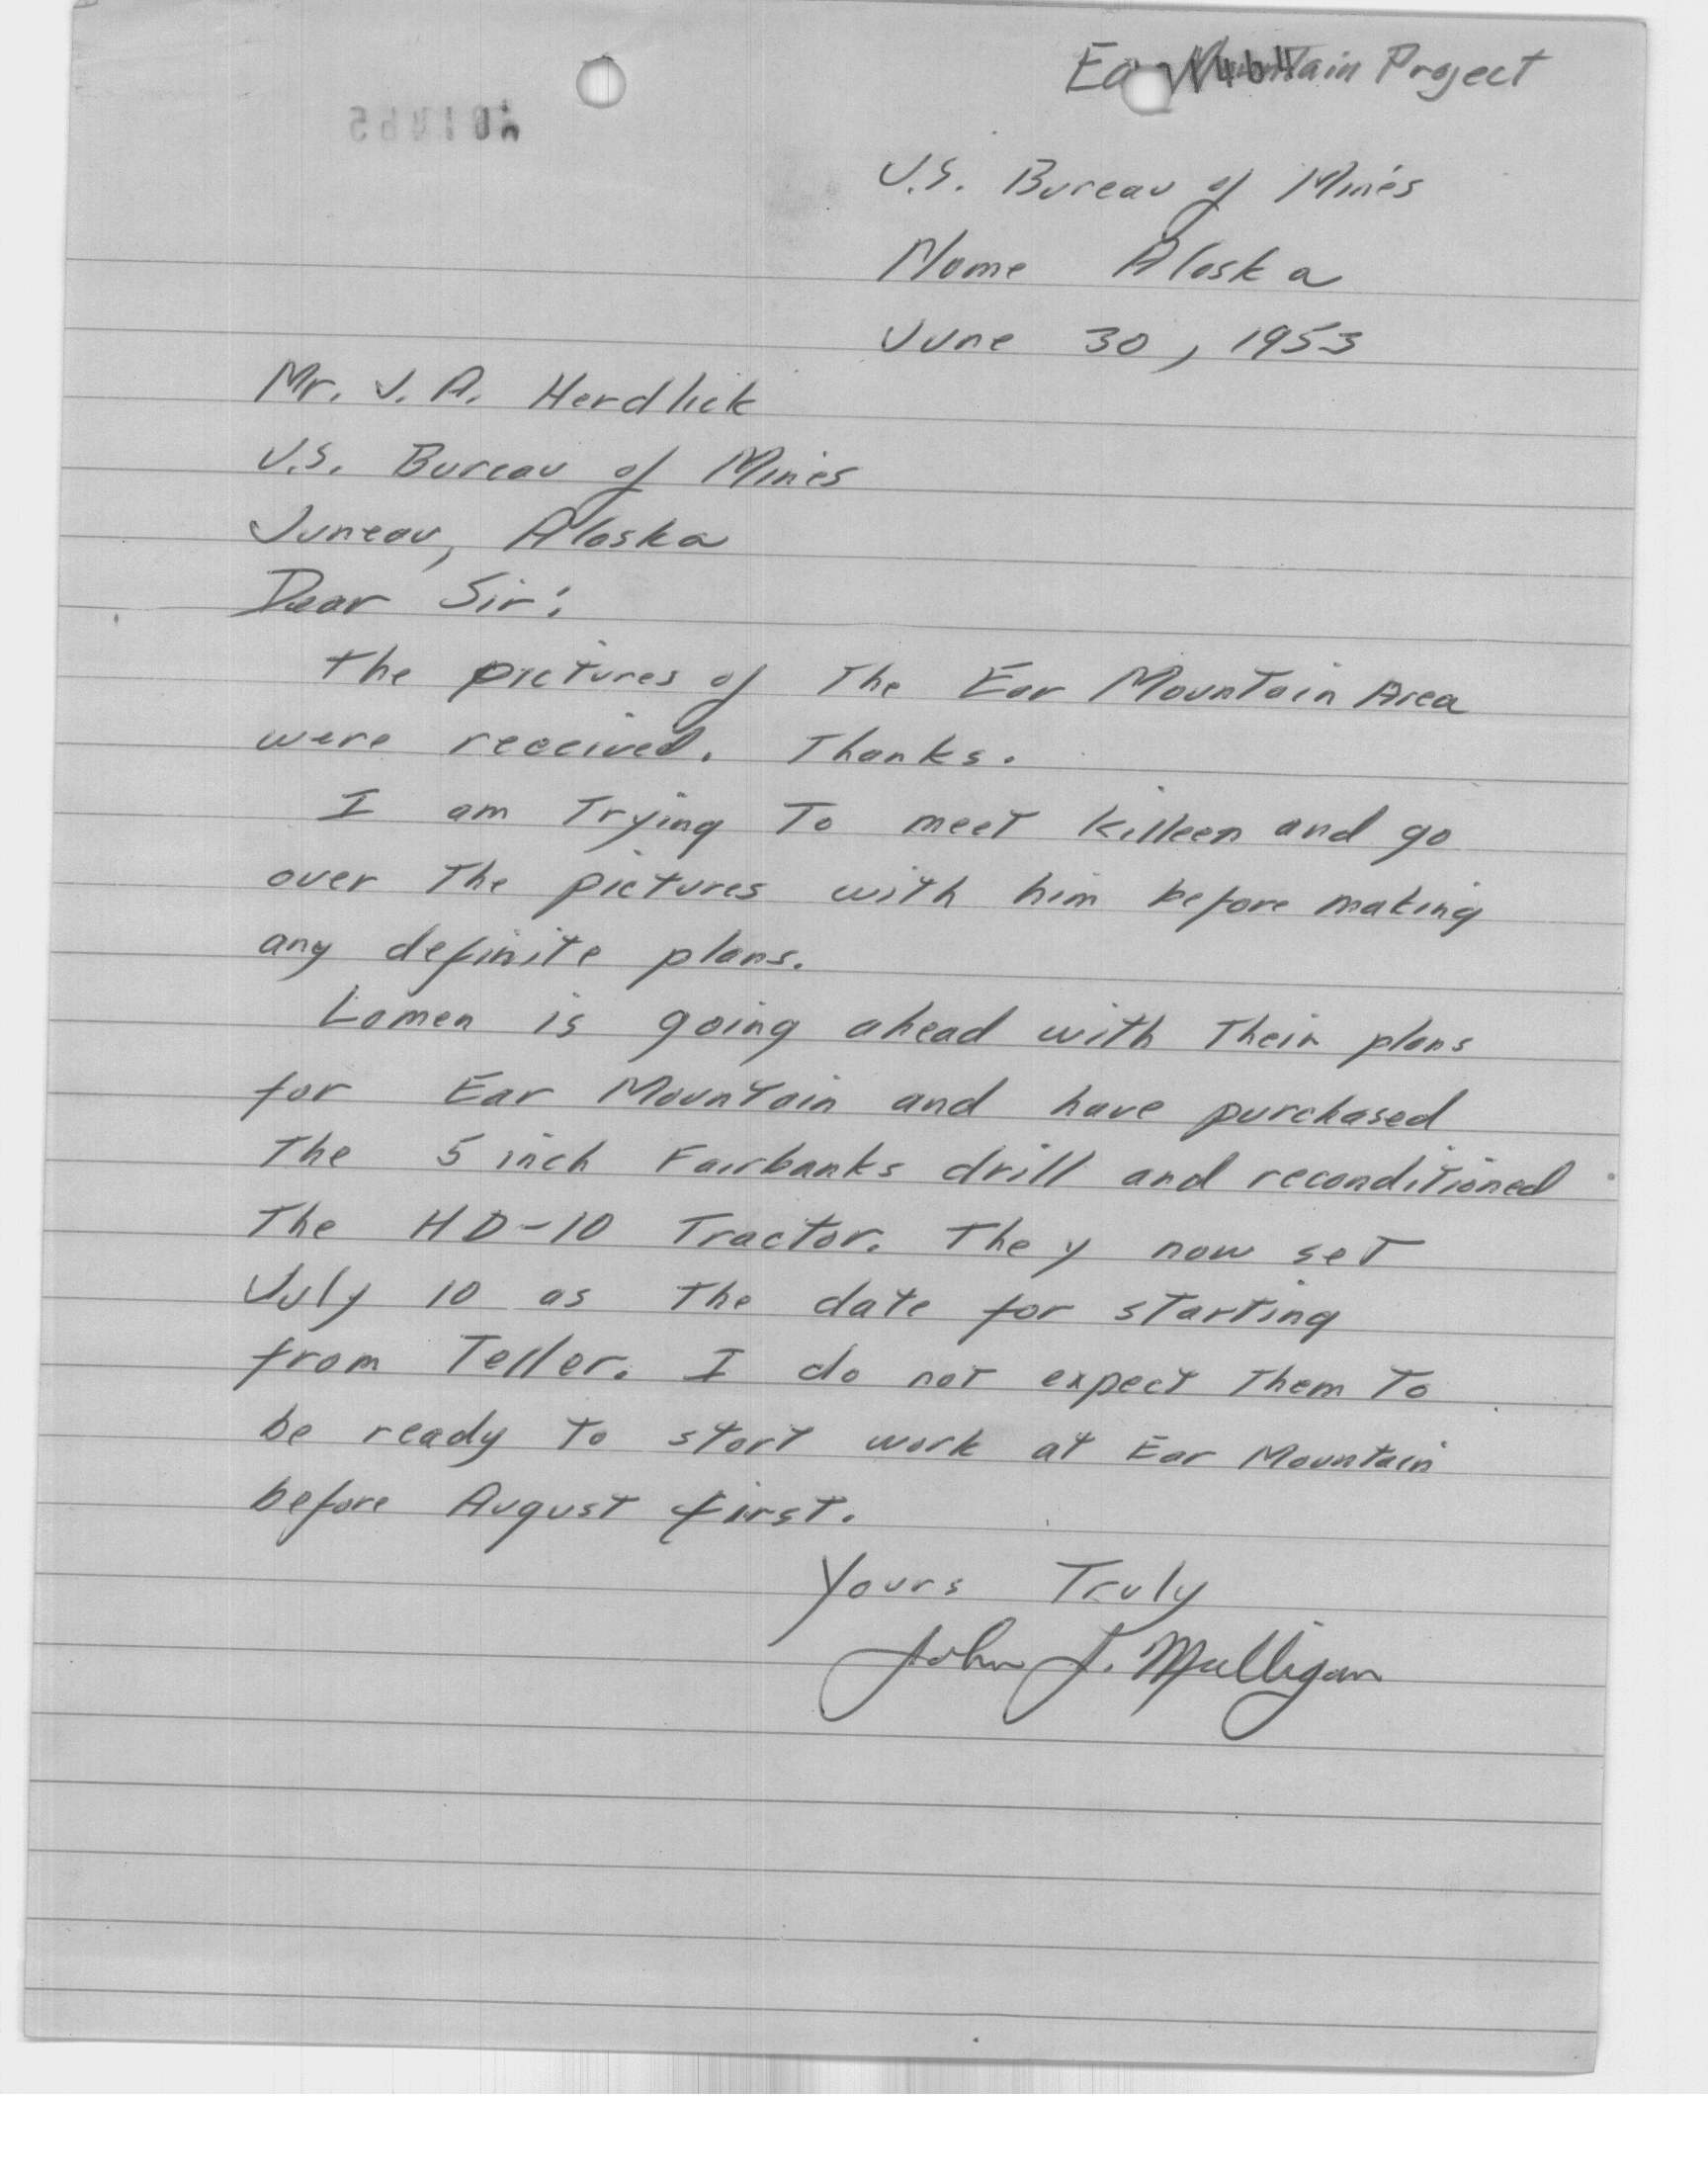 Ear Mountain Project
U.S. Bureau of Mines
Nome Alaska
June 30, 1953
Mr. J. A. Herdlick
U.S. Bureau of Mines
Juneau, Alaska
Dear Sir:
The pictures of The Ear Mountain Area
were received. Thanks.
I am Trying To meet Killeen and go
over The pictures with him before making
any definite plans.
Lomen is going ahead with Their plans
for Ear Mountain and have purchased
The 5 inch Fairbanks drill and reconditioned
The HD-10 Tractor. They now set
July 10 as The date for starting
from Teller. I do not expect Them To
be ready To start work at Ear Mountain
before August first.
Yours Truly
John J. Mulligan